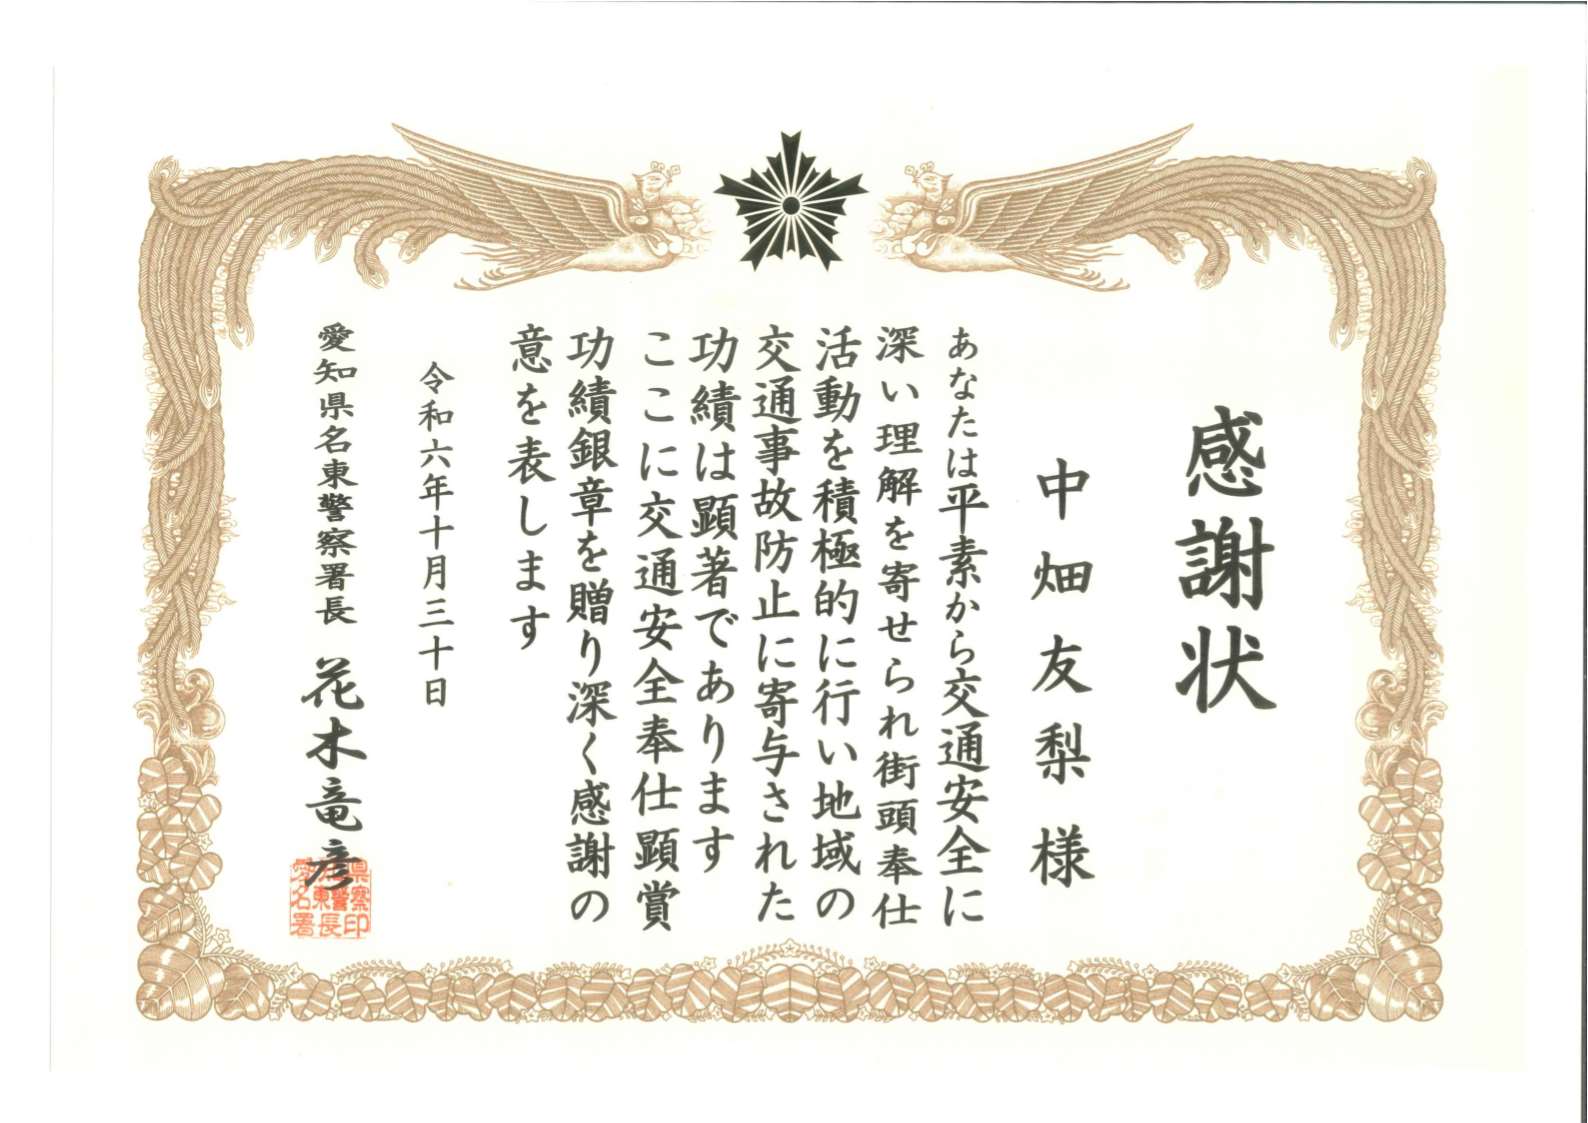 感謝状
中畑友梨様
あなたは平素から交通安全に
深い理解を寄せられ街頭奉仕
活動を積極的に行い地域の
交通事故防止に寄与された
功績は顕著であります
ここに交通安全奉仕顕賞
功績銀章を贈り深く感謝の
意を表します
令和六年十月三十日
愛知県名東警察署長 花木竜彦